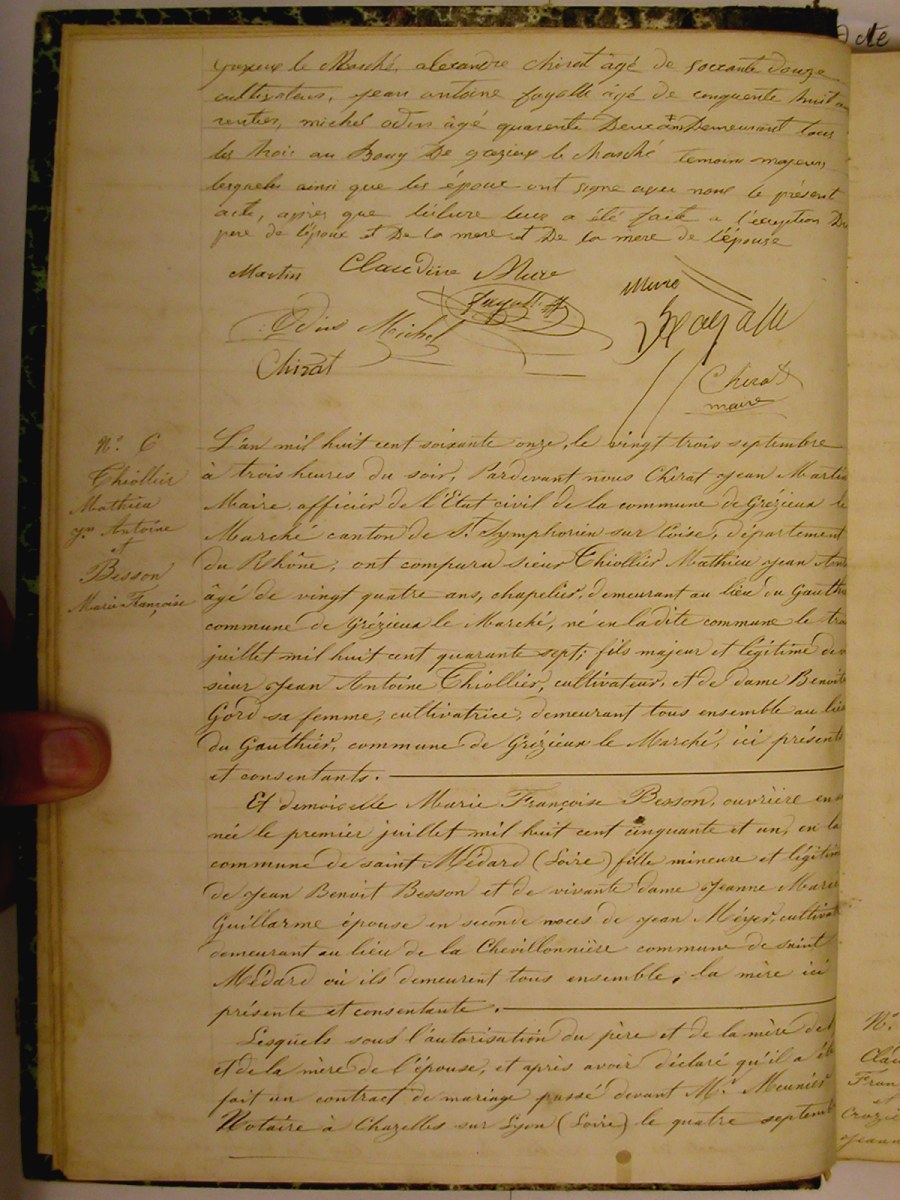 acte
Grézieux le Marché, alexandre Chirat âgé de soccante douze
cultivateur, jean antoine fayolle âgé de cinquente huit an
rentier, michel odin âgé quarente Deux ans Demeurant tous
les trois au Bourg De grezieux le Marché temoins majeurs,
lesquels ainsi que les époux ont signe avec nous le présent
acte, après que lecture leur a été faite a l'exception Du
pere de l'époux et De la mere et De la mere de l'épouse
Martin Claudine Mure Mure
fayolle
Odin Michel Fayolle
Chirat
Chirat
maire
N° 6
Thiollier
Mathieu
jn Antoine
et
Besson
Marie Françoise
L'an mil huit cent soixante onze, le vingt trois septembre
à trois heures du soir, Pardevant nous Chirat Jean Martin
Maire officier de l'Etat civil de la commune de Grézieux le
Marché canton de St Symphorien sur Coise, département
du Rhône; ont comparu sieur Thiollier Mathieu Jean Ant
âgé de vingt quatre ans, chapelier, demeurant au lieu du Gauthi
commune de Grézieux le Marché, né en ladite commune le tr
juillet mil huit cent quarante sept; fils majeur et légitime de
sieur Jean Antoine Thiollier, cultivateur, et de dame Benoite
Gord sa femme, cultivatrice, demeurant tous ensemble au lieu
du Gauthier, commune de Grézieux le Marché, ici présents
et consentants.
Et demoiselle Marie Françoise Besson, ouvrière en
née le premier juillet mil huit cent cinquante et un, en la
commune de saint Médard (Loire) fille mineure et légitime
de Jean Benoit Besson et de vivante dame Jeanne Marie
Guillarme épouse en seconde noces de Jean Méyer, cultivat
demeurant au lieu de la Chevillonnière commune de saint
Médard où ils demeurent tous ensemble, la mère ici
présente et consentante.
Lesquels sous l'autorisation du père et de la mère de l
et de la mère de l'épouse, et après avoir déclaré qu'il a été
fait un contract de mariage passé devant Mr Meunier
Notaire à Chazelles sur Lyon (Loire) le quatre septemb
N°
Clau
Fran
et
Crozie
Jeann